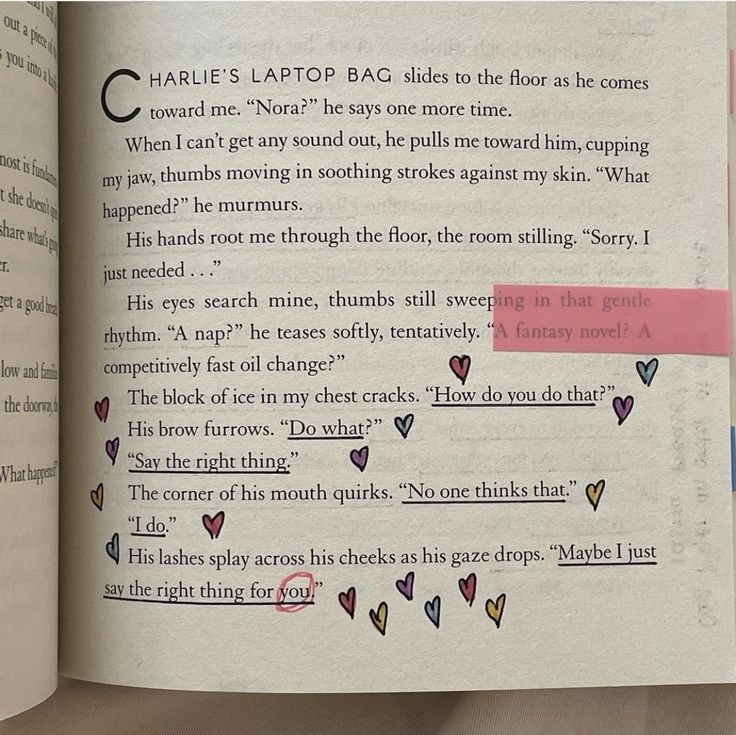 out a piece of
you into a
most is
t she doesn't
share what's
er.
get a good
low and
the doorway,
What happened?
CHARLIE'S LAPTOP BAG slides to the floor as he comes
toward me. “Nora?” he says one more time.
When I can't get any sound out, he pulls me toward him, cupping
my jaw, thumbs moving in soothing strokes against my skin. “What
happened?” he murmurs.
His hands root me through the floor, the room stilling. “Sorry. I
just needed . . .”
His eyes search mine, thumbs still sweeping in that gentle
rhythm. “A nap?” he teases softly, tentatively. “A fantasy novel? A
competitively fast oil change?”
The block of ice in my chest cracks. “How do you do that?”
His brow furrows. “Do what?”
“Say the right thing.”
The corner of his mouth quirks. “No one thinks that.”
“I do.”
His lashes splay across his cheeks as his gaze drops. “Maybe I just
say the right thing for you.”